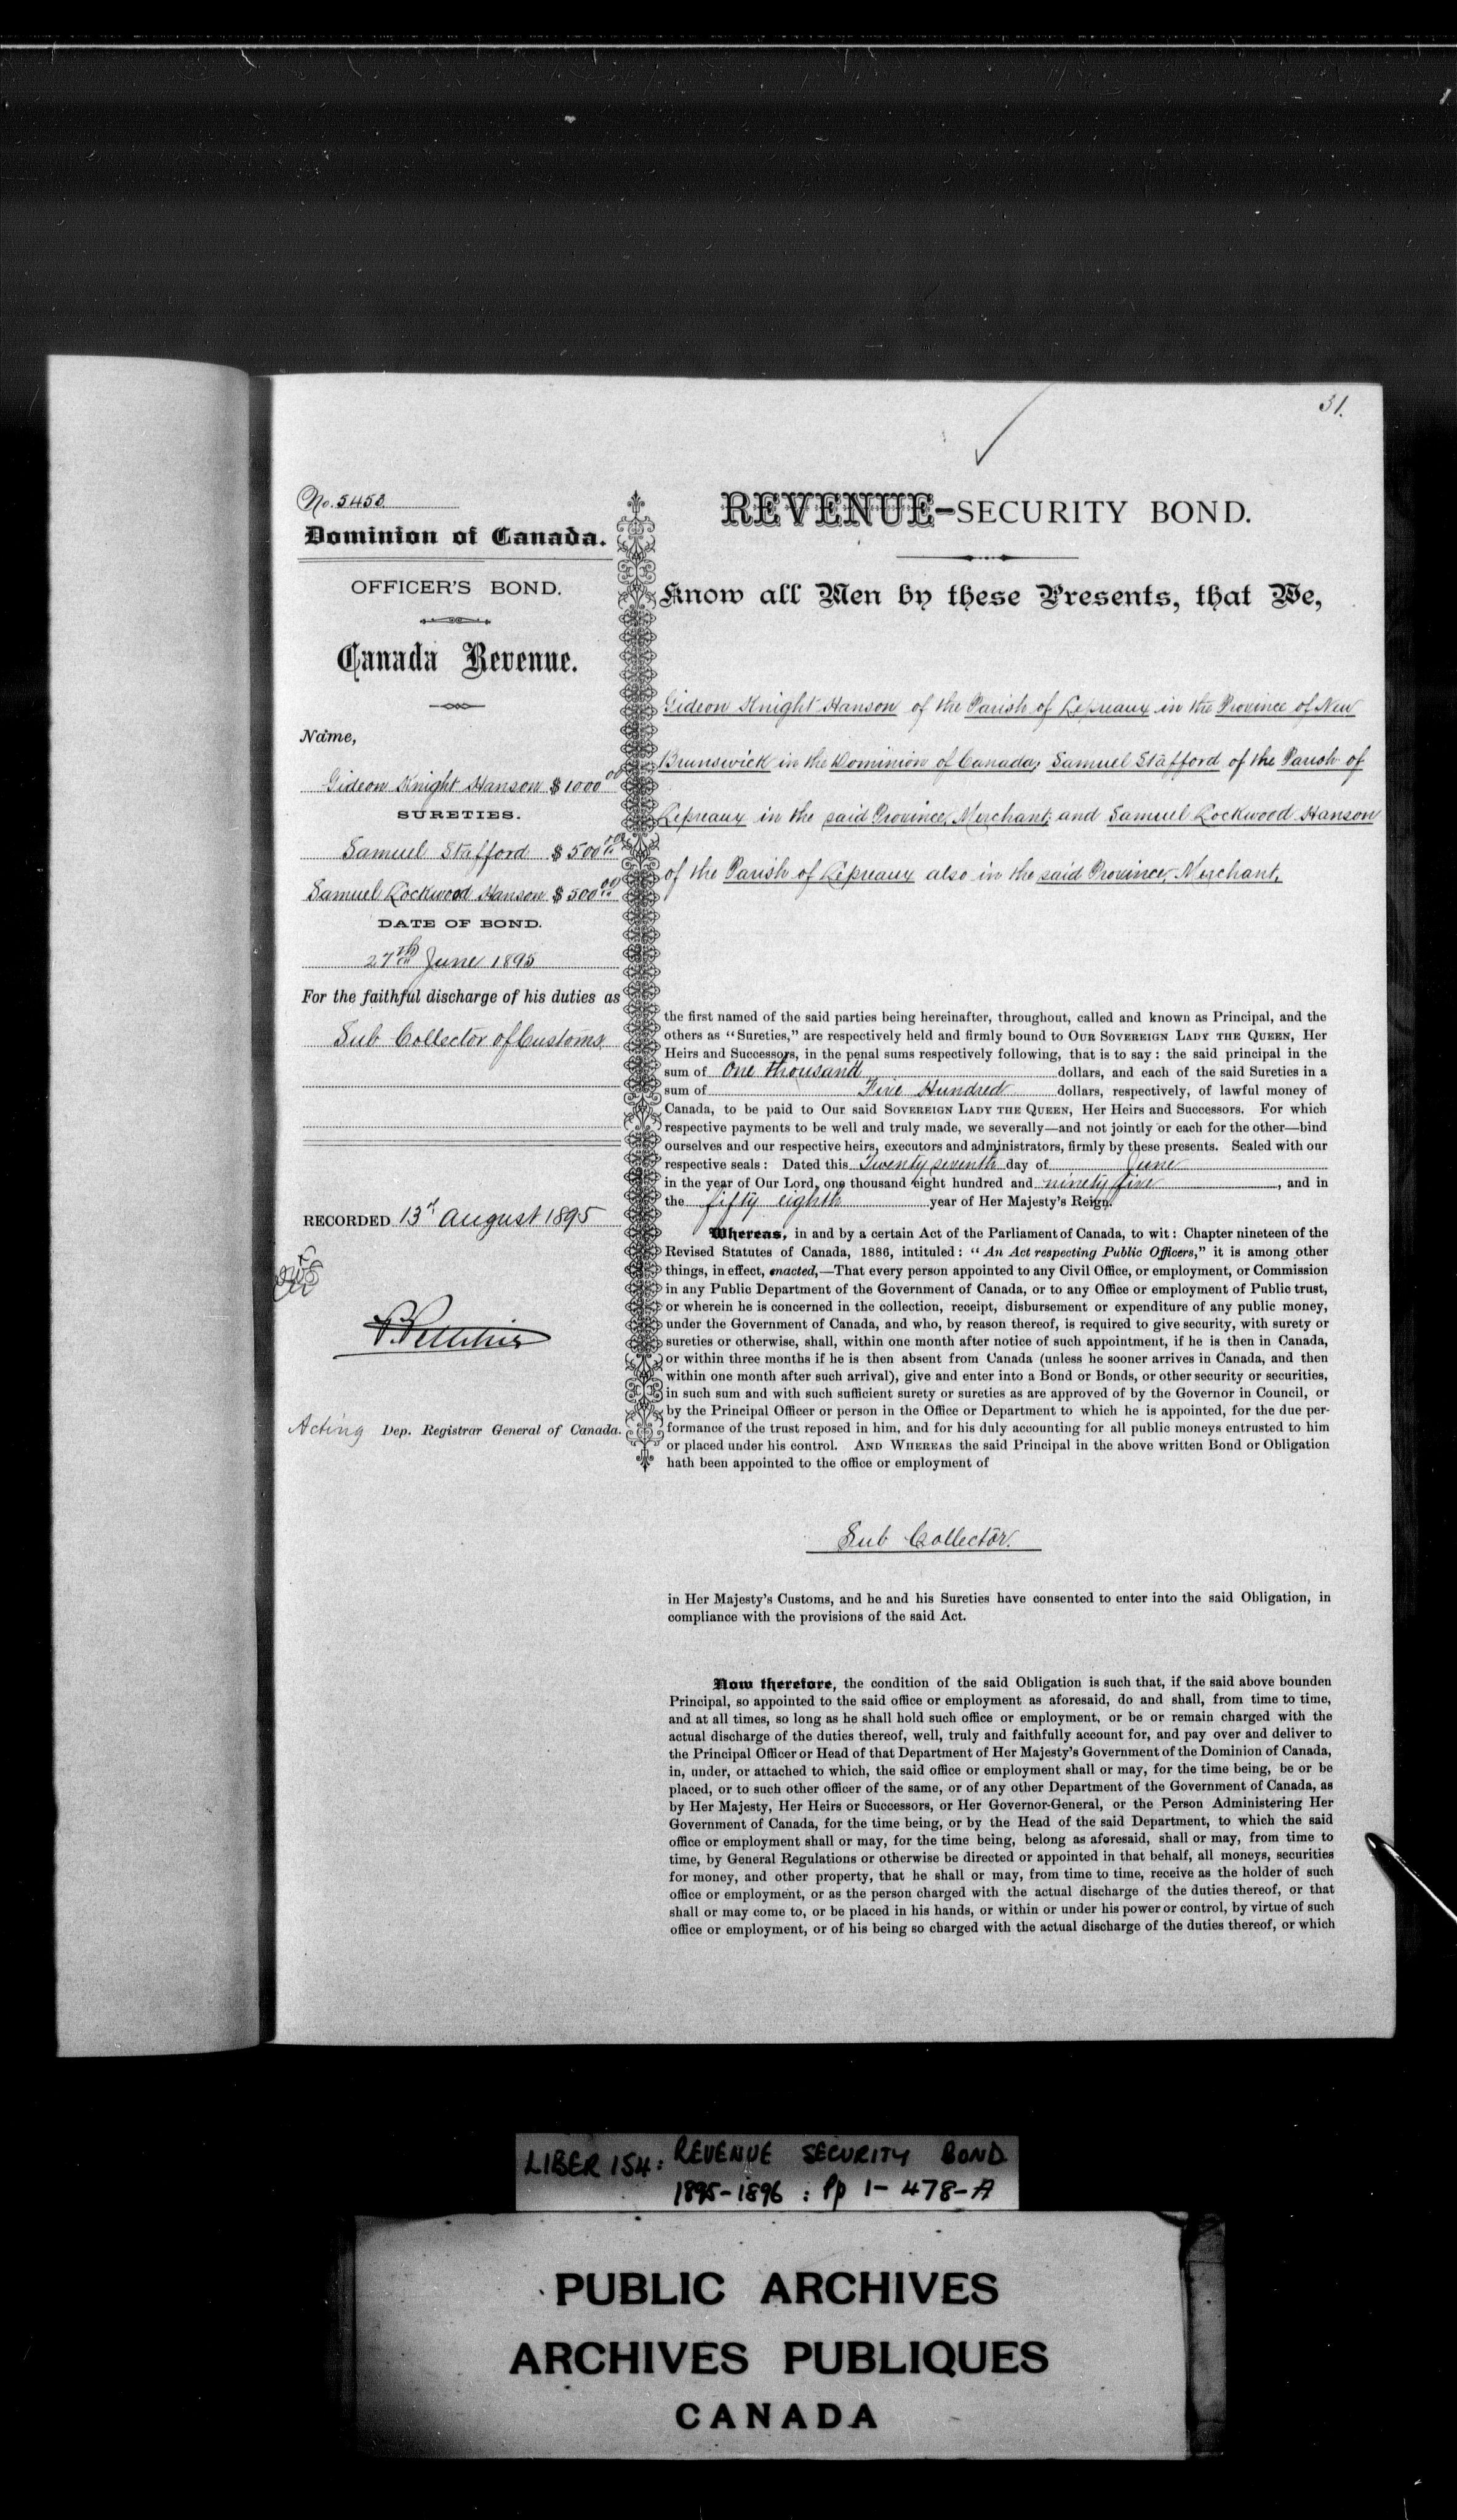 31.
No. 5453.
Dominion of Canada.
OFFICER'S BOND.
Canada Revenue.
Name,
Gideon Knight Hanson $1000 00
SURETIES.
Samuel Stafford $500 00
Samuel Rockwood Hanson $500 00
DATE OF BOND.
27th June 1895
For the faithful discharge of his duties as
Sub Collector of Customs
RECORDED 13th August 1895
Acting Dep. Registrar General of Canada.
REVENUE-SECURITY BOND.
Know all Men by these Presents, that We,
Gideon Knight Hanson of the Parish of Lepreaux in the Province of New
Brunswick in the Dominion of Canada, Samuel Stafford of the Parish of
Lepreaux in the said Province, Merchant; and Samuel Rockwood Hanson
of the Parish of Lepreaux also in the said Province, Merchant,
the first named of the said parties being hereinafter, throughout, called and known as Principal, and the
others as "Sureties," are respectively held and firmly bound to OUR SOVEREIGN LADY THE QUEEN, Her
Heirs and Successors, in the penal sums respectively following, that is to say: the said principal in the
sum of One thousand dollars, and each of the said Sureties in a
sum of Five Hundred dollars, respectively, of lawful money of
Canada, to be paid to Our said SOVEREIGN LADY THE QUEEN, Her Heirs and Successors. For which
respective payments to be well and truly made, we severally—and not jointly or each for the other—bind
ourselves and our respective heirs, executors and administrators, firmly by these presents. Sealed with our
respective seals: Dated this Twenty seventh day of June
in the year of Our Lord, one thousand eight hundred and ninety five, and in
the fifty eighth year of Her Majesty's Reign.
Whereas, in and by a certain Act of the Parliament of Canada, to wit: Chapter nineteen of the
Revised Statutes of Canada, 1886, intituled: "An Act respecting Public Officers," it is among other
things, in effect, enacted,—That every person appointed to any Civil Office, or employment, or Commission
in any Public Department of the Government of Canada, or to any Office or employment of Public trust,
or wherein he is concerned in the collection, receipt, disbursement or expenditure of any public money,
under the Government of Canada, and who, by reason thereof, is required to give security, with surety or
sureties or otherwise, shall, within one month after notice of such appointment, if he is then in Canada,
or within three months if he is then absent from Canada (unless he sooner arrives in Canada, and then
within one month after such arrival), give and enter into a Bond or Bonds, or other security or securities,
in such sum and with such sufficient surety or sureties as are approved of by the Governor in Council, or
by the Principal Officer or person in the Office or Department to which he is appointed, for the due per-
formance of the trust reposed in him, and for his duly accounting for all public moneys entrusted to him
or placed under his control. AND WHEREAS the said Principal in the above written Bond or Obligation
hath been appointed to the office or employment of
Sub Collector.
in Her Majesty's Customs, and he and his Sureties have consented to enter into the said Obligation, in
compliance with the provisions of the said Act.
Now therefore, the condition of the said Obligation is such that, if the said above bounden
Principal, so appointed to the said office or employment as aforesaid, do and shall, from time to time,
and at all times, so long as he shall hold such office or employment, or be or remain charged with the
actual discharge of the duties thereof, well, truly and faithfully account for, and pay over and deliver to
the Principal Officer or Head of that Department of Her Majesty's Government of the Dominion of Canada,
in, under, or attached to which, the said office or employment shall or may, for the time being, be or be
placed, or to such other officer of the same, or of any other Department of the Government of Canada, as
by Her Majesty, Her Heirs or Successors, or Her Governor-General, or the Person Administering Her
Government of Canada, for the time being, or by the Head of the said Department, to which the said
office or employment shall or may, for the time being, belong as aforesaid, shall or may, from time to
time, by General Regulations or otherwise be directed or appointed in that behalf, all moneys, securities
for money, and other property, that he shall or may, from time to time, receive as the holder of such
office or employment, or as the person charged with the actual discharge of the duties thereof, or that
shall or may come to, or be placed in his hands, or within or under his power or control, by virtue of such
office or employment, or of his being so charged with the actual discharge of the duties thereof, or which
LIBER 154: REVENUE SECURITY BOND
1895-1896 : Pp 1- 478-A
PUBLIC ARCHIVES
ARCHIVES PUBLIQUES
CANADA